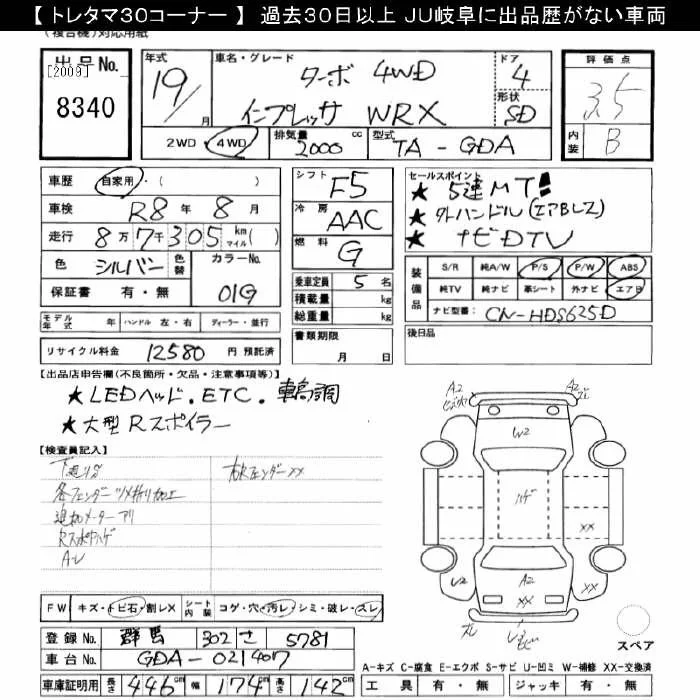 【 トレタマ30コーナー 】 過去30日以上 JU岐阜に出品歴がない車両
(複合機)対応用紙
出品No.
[2009]
8340
年式 19/ 月
車名・グレード ターボ 4WD
インプレッサ WRX
ドア 4
形状 SD
評価点 3.5
内装 B
2WD・4WD 排気量 2000 cc 型式 TA-GDA
車歴 自家用・( )
車検 R8年 8月
走行 8万7千305 km マイル( )
色 シルバー 色替 カラーNo. 019
保証書 有・無
シフト F5
冷房 AAC
燃料 G
乗車定員 5名
積載量 kg
総重量 kg
書類期限
月 日
セールスポイント
★ 5速MT!!
★ 外ハンドル(エアBレス)
★ ナビDTV
装備品 S/R 純A/W P/S P/W ABS
純TV 純ナビ 革シート 外ナビ エアB
ナビ型番: CN-HDS625D
後日品
モデル年式 年 ハンドル 左・右 ディーラー・並行
リサイクル料金 12580 円 預託済
【出品店申告欄(不良箇所・欠品・注意事項等)】
★ LEDヘッド.ETC.車高調
★ 大型Rスポイラー
【検査員記入】
下廻りサビ
右Rフェンダー××
各フェンダーツメ折り加工
追加メーターアリ
Rスポ小ハゲ
A-U
A2
A2
W2
ハゲ
××
U2
A2
××
××
FW キズ・トビ石・割レX シート内装 コゲ・穴・汚レ・シミ・破レ・スレ
登録No. 群馬 302 さ 5781
車台No. GDA-021407
車庫証明用 長さ 446cm 幅 174cm 高さ 142cm
スペア
A-キズ C-腐食 E-エクボ S-サビ U-凹ミ W-補修 XX-交換済
工具 有・無 ジャッキ 有・無